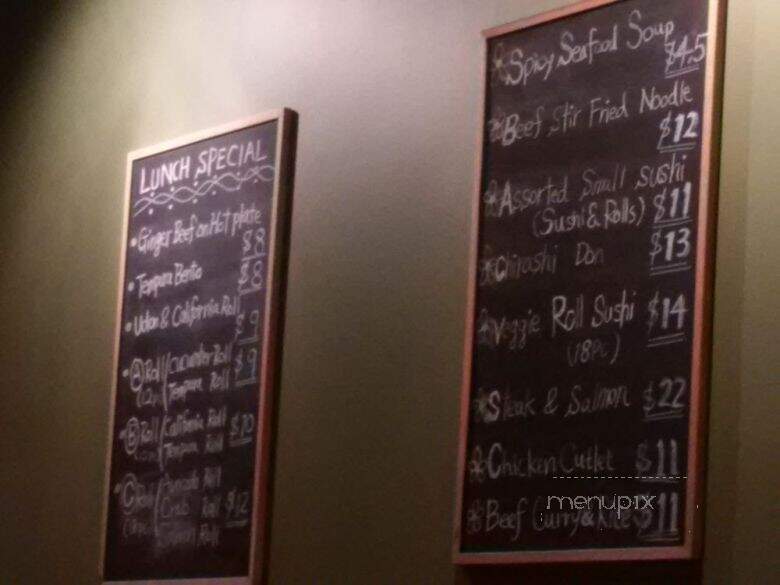 LUNCH SPECIAL
• Ginger Beef on Hot plate
$8
• Tempura Bento $8
• Udon & California Roll
$9
• Ⓐ Roll / Cucumber Roll $9
Tempura Roll
• Ⓑ Roll / California Roll $10
Tempura Roll
• Ⓒ Roll Roll
Crab Roll $12
Roll
Spicy Seafood Soup
$4.5
Beef Stir Fried Noodle
$12
Assorted Small Sushi
(Sushi & Rolls) $11
Chirashi Don $13
Veggie Roll Sushi $14
(18pc)
Steak & Salmon $22
Chicken Cutlet $11
Beef Curry & Rice $11
menupix